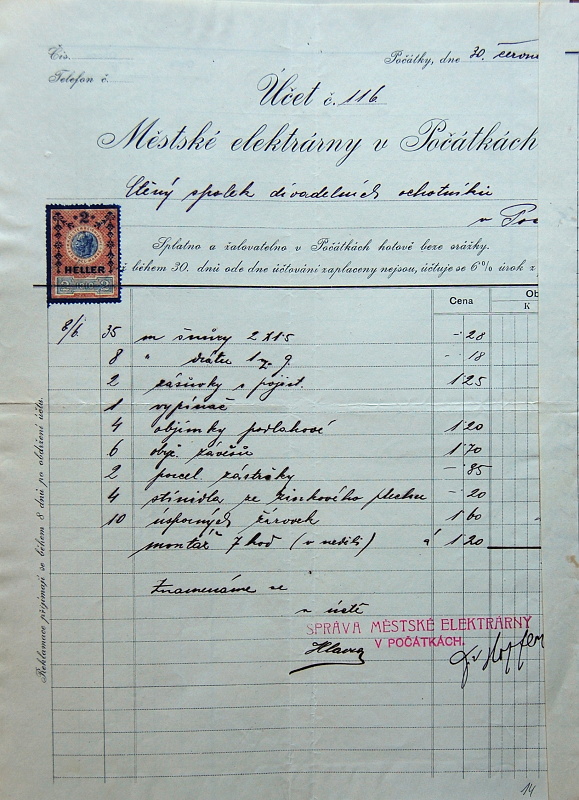 Čís.
Telefon č.
Počátky, dne 30. červn
Účet č. 116
Městské elektrárny v Počátkách
Ctěný spolek divadelních ochotníků
v Poč
2
HELLER
Splatno a žalovatelno v Počátkách hotově beze srážky.
během 30. dnů ode dne účtování zaplaceny nejsou, účtuje se 6% úrok z
Cena Ob
K
8/6. 35 m šnůry 2x1·5 -·28
8 " drátu 1 g. -·18
2 zásuvky s pojist. 1·25
1 vypínač
4 objímky podlahové 1·20
6 obyč. závěsů 1·70
2 porcel. zástrčky -·85
4 stínidla ze zinkového plechu -·20
10 úsporných žárovek 1·60
montáž 7 hod (v neděli) á 1·20
Znamenáme se
v úctě
SPRÁVA MĚSTSKÉ ELEKTRÁRNY
V POČÁTKÁCH.
Reklamace přijímají se během 8 dnů po obdržení účtu.
14